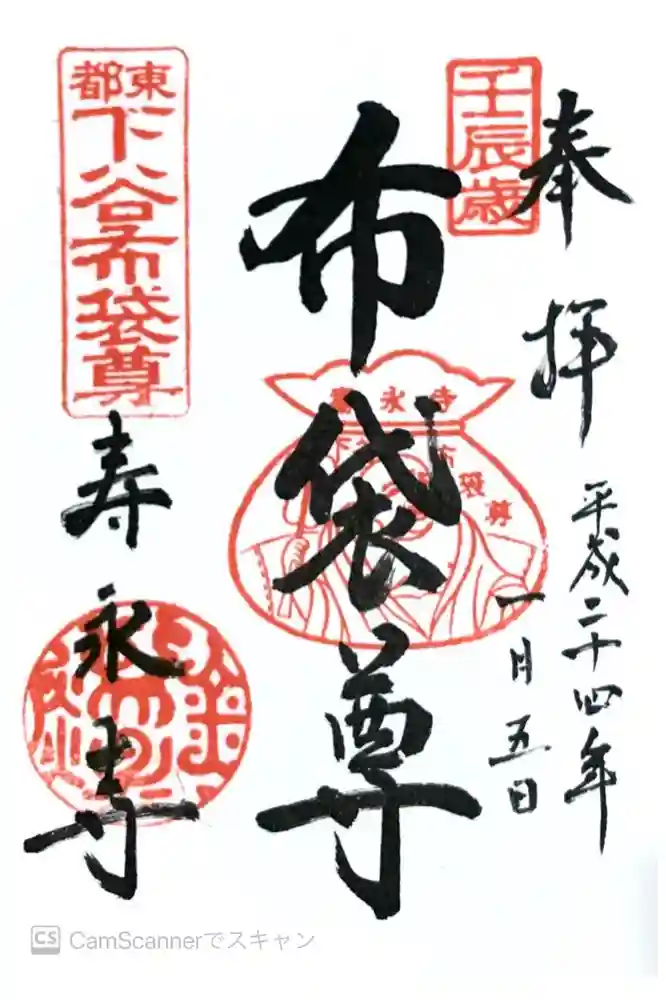 奉拝
平成二十四年
一月五日
壬辰歳
布袋尊
寿永寺
下谷布袋尊
東都
下谷布袋尊
寿永寺
CS CamScannerでスキャン